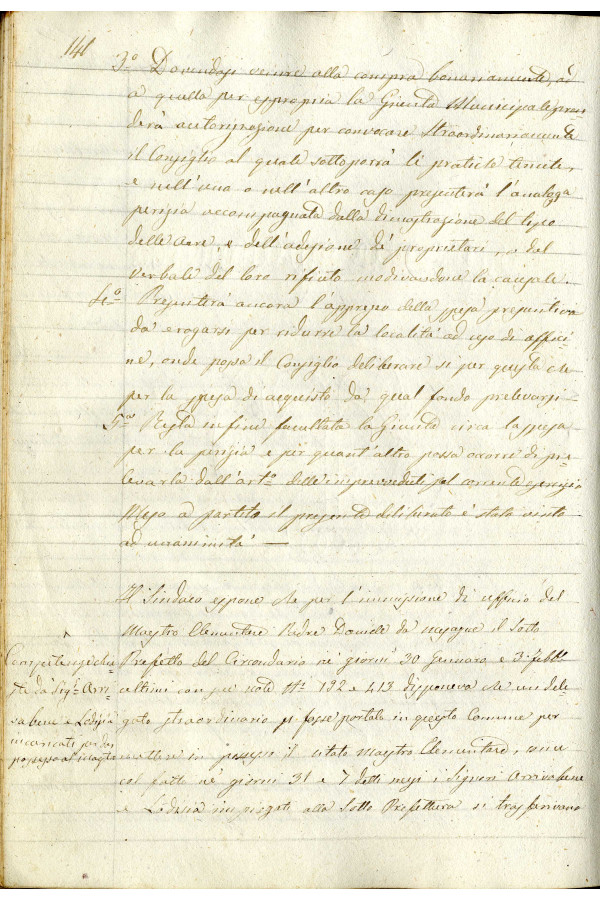 141
3.° Dovendosi venire alla compra bonariamente, od
a quella per espropria la Giunta Municipale pren-
derà autorizzazione per convocare straordinariamente
il Consiglio al quale sottoporrà le pratiche tenute,
e nell'uno o nell'altro caso presenterà l'analoga
perizia accompagnata dalla dimostrazione del
delle aere, e dell'adesione de' proprietari, o dal
verbale del loro rifiuto motivandone la causale.
4.° Presenterà ancora l'apprezzo della spesa preventiva
da erogarsi per ridurre la località ad uso di offici-
ne, onde possa il Consiglio deliberare si per questa che
per la spesa di acquisto da qual fondo prelevarsi
5.° Resta infine facultata la Giunta circa la spesa
per la perizia e per quant'altro possa occorrere di pre-
levarla dall'art.° delle impreveduti pel corrente esercizio
Messo a partito il presente deliberato è stato vinto
ad unanimità —
Il Sindaco espone che per l'immissione di ufficio del
Maestro Elementare Padre Daniele da il Sotto
Prefetto del Circondario ne' giorni 30 Gennaro, e 3 febb.°
ultimi con sue note N.° 192 e 413 disponeva che un dele-
gato straordinario si fosse portato in questo Comune per
mettere in possesso il citato Maestro Elementare, come
col fatto ne' giorni 31 e 7 detti mesi i Signori Arrivabene
e Lodisia impiegati alla Sotto Prefettura si trasferivano
Competenze chie-
ste da' Sig.ri Arri-
vabene e Lodisia
incaricati pel
possesso al maestro